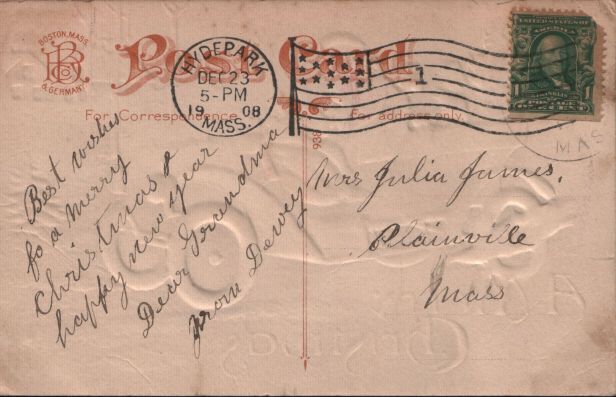 BOSTON, MASS.
B Co
& GERMANY
Post Card
HYDE PARK
DEC 23
5-PM
1908
MASS.
1
UNITED STATES OF
AMERICA
FRANKLIN
1 POSTAGE 1
For Correspondence
For address only.
938
MAS
Best wishes
fo a merry
Christmas &
happy new year
Dear Grandma
from Dewey
Mrs Julia James.
Plainville
Mass